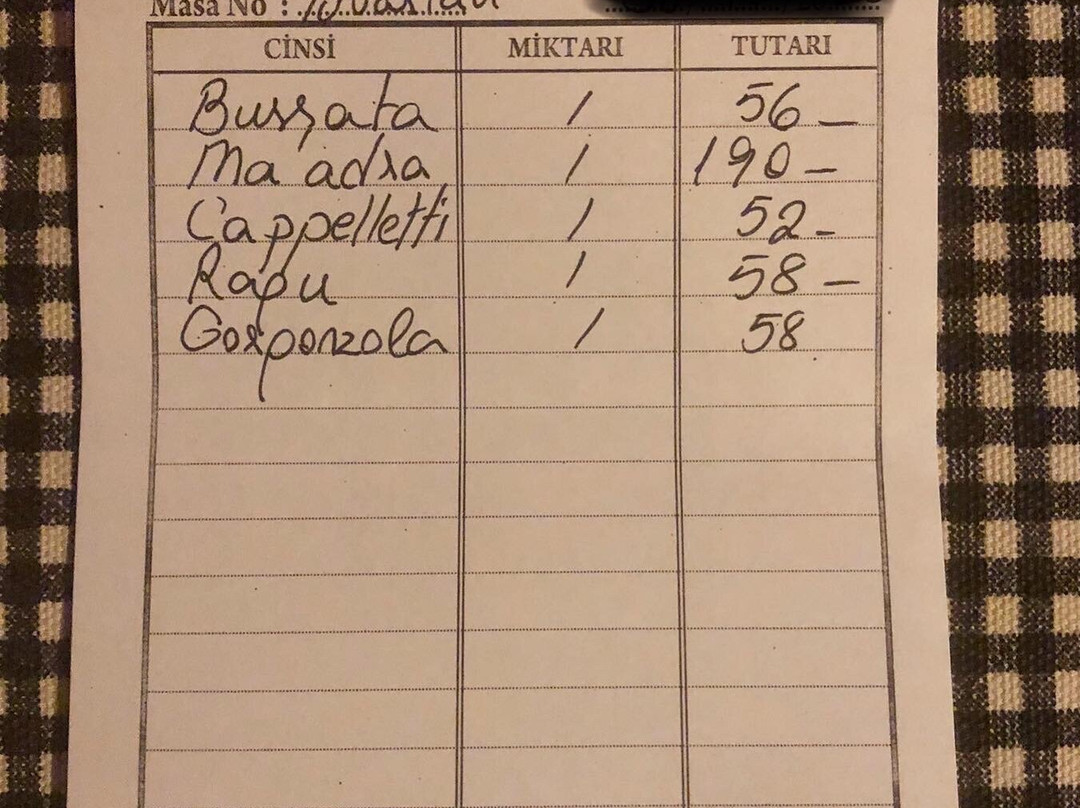 Masa No :
CİNSİ MİKTARI TUTARI
Burrata 1 56 -
Ma adra 1 190 -
Cappelletti 1 52 -
Ragu 1 58 -
Gorgonzola 1 58